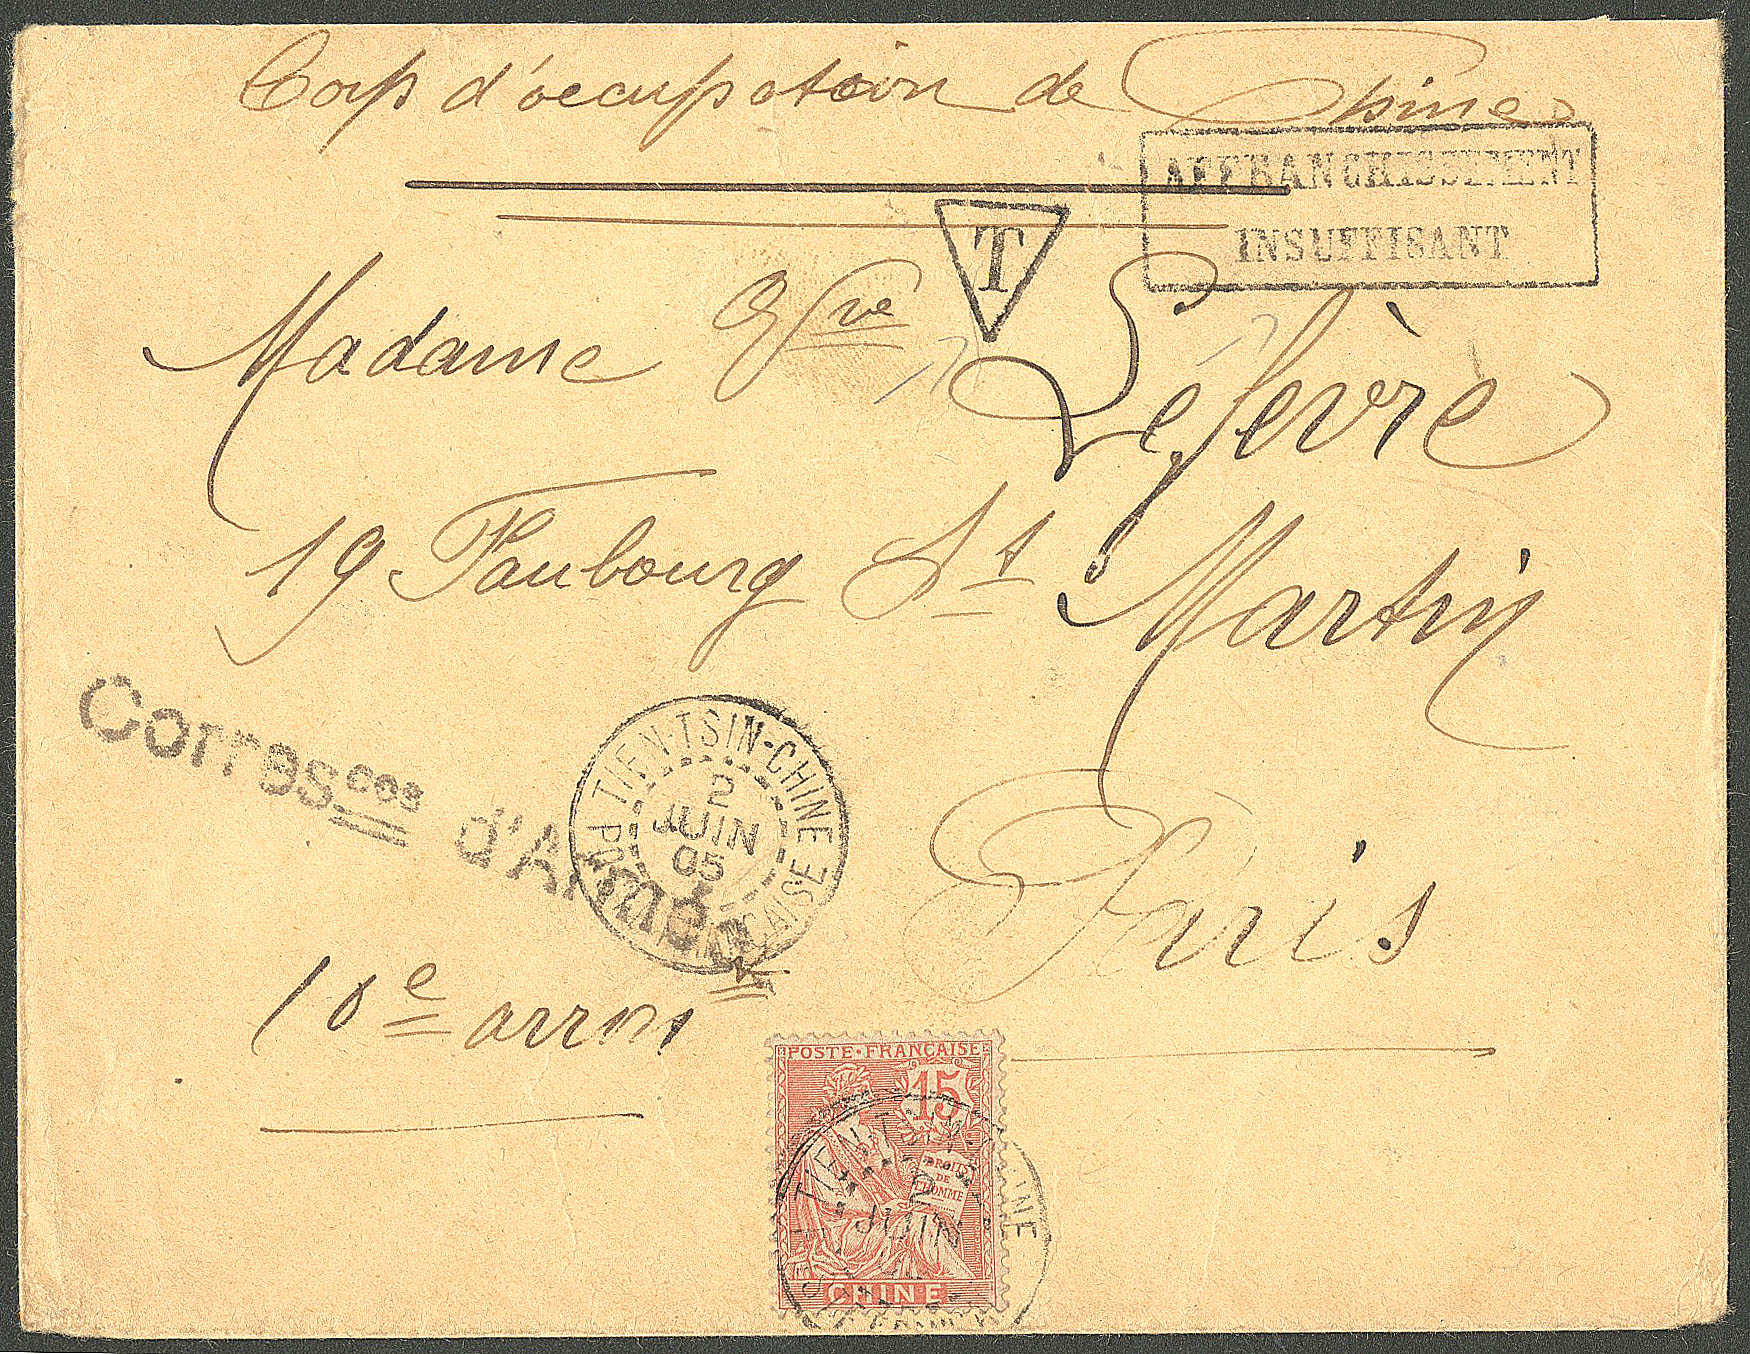 Corps d'occupation de Chine
AFFRANCHISSEMENT
INSUFFISANT
T
Madame Vve Lefèvre
19 Faubourg St Martin
Corresces d'Armées
TIEN-TSIN-CHINE
2
JUIN
05
POSTE FRANÇAISE
Paris
10e arront
POSTE·FRANÇAISE
15
DROITS
DE
L'HOMME
TIEN-TSIN-CHINE
2
JUIN
CHINE